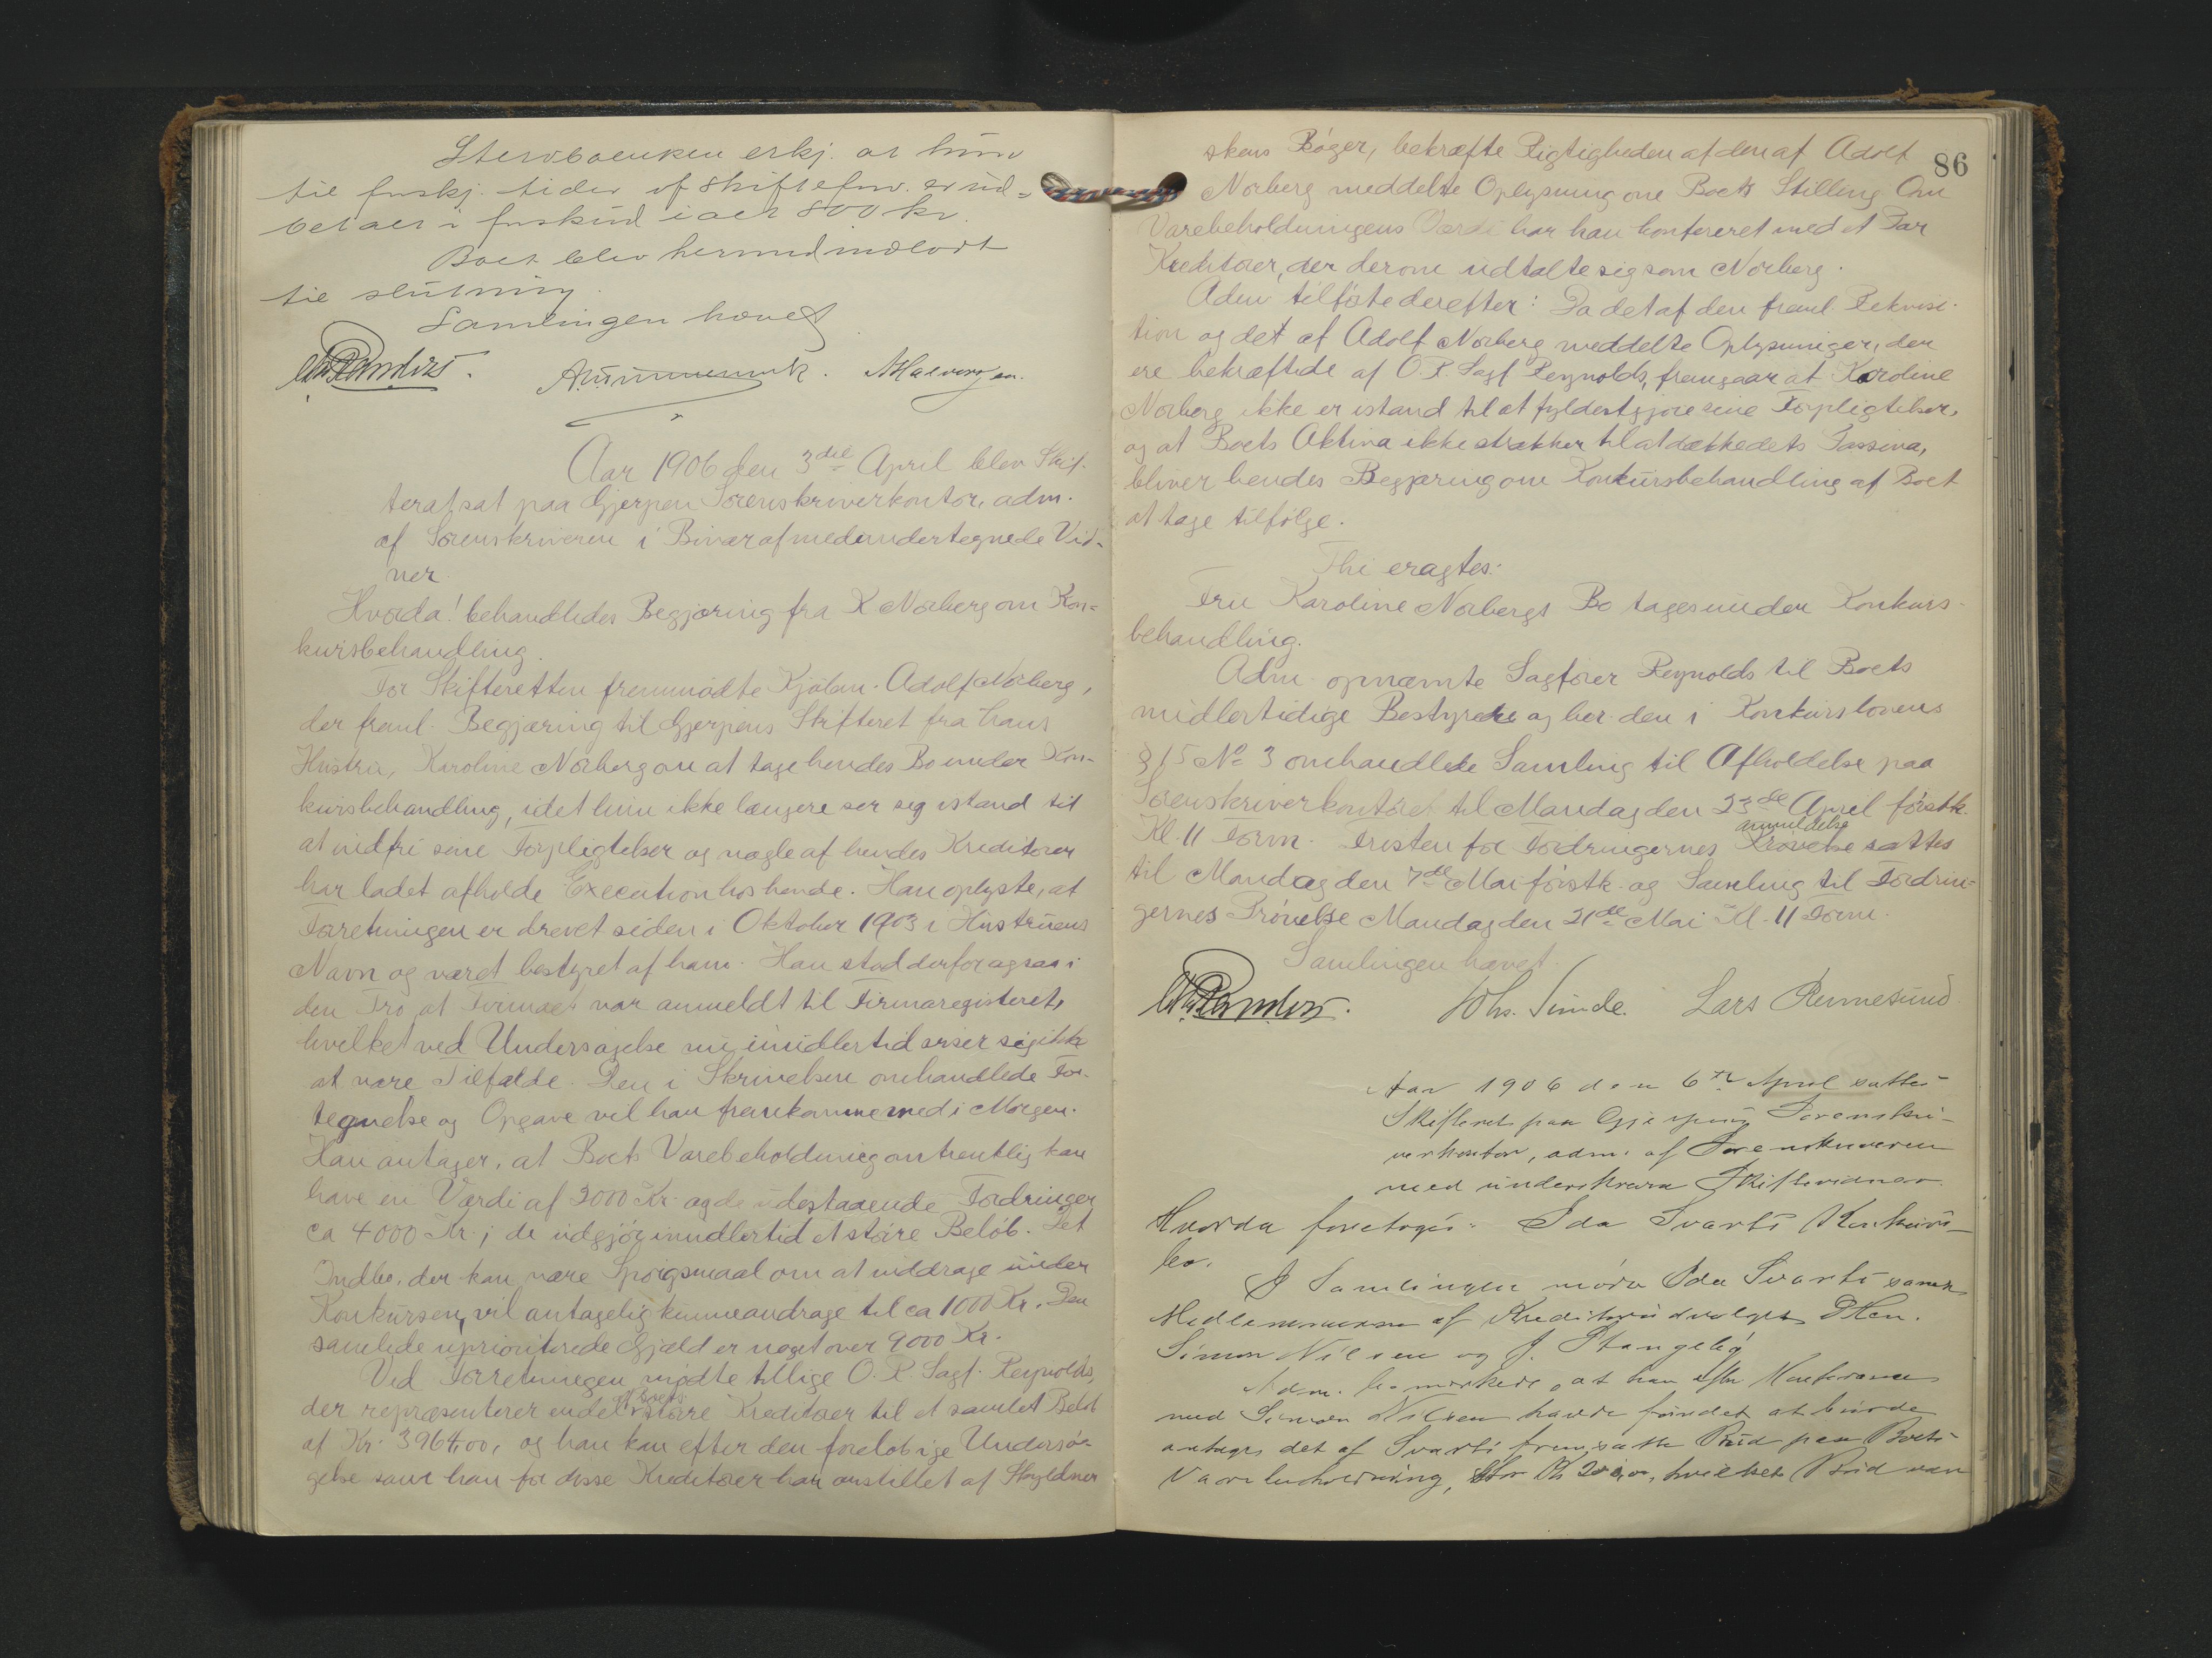 Stervboenken erkj. at hun
til forskj. tider af skifteforv. er ud=
betalt i forskud ialt 800 kr.
Boet blev hermed indlodt
til slutning.
Samlingen hævet
Aar 1906 den 3die April blev Skif-
teret sat paa Gjerpen Sorenskriverkontor, adm.
af Sorenskriveren i Bivær af medundertegnede Vid-
ner.
Hvorda! behandledes Begjæring fra K Norberg om Kon=
kursbehandling.
For Skifteretten fremmødte Kjøbm. Adolf Norberg,
der freml. Begjæring til Gjerpens Skifteret fra hans
Hustru, Karoline Norberg om at tage hendes Bo under Kon-
kursbehandling, idet hun ikke længere ser sig istand til
at indfri sine Forpligtelser og nogle af hendes Kreditorer
har ladet afholde Execution hos hende. Han oplyste, at
Forretningen er drevet siden i Oktober 1903 i Hustruens
Navn og været bestyret af ham. Han stod derfor ogsaa i
den Tro at Firmaet var anmeldt til Firmaregisteret,
hvilket ved Undersøgelse nu imidlertid viser sig ikke
at være Tilfælde. Den i Skrivelsen omhandlede For-
tegnelse og Opgave vil han fremkomme med i Morgen.
Han antager, at Boets Varebeholdning omtrentlig kan
have en Værdi af 3000 Kr. og de udestaaende Fordringer
ca 4000 Kr.; de udgjør imidlertid et større Beløb. Det
Indbo, der kan være Spørgsmaal om at inddrage under
Konkursen, vil antagelig kunne andrage til ca 1000 Kr. Den
samlede uprioriterede Gjæld er noget over 9000 Kr.
Ved Forretningen mødte tillige O. R. Sagf. Reynolds,
der repræsenterer endel af Boets større Kreditorer til et samlet Beløb
af Kr. 3964,00, og han kan efter den foreløbige Undersø-
gelse som han for disse Kreditorer har anstillet af Skyldner
86
skens Bøger, bekræfte Rigtigheden af den af Adolf
Norberg meddelte Oplysning om Boets Stilling Om
Varebeholdningens Værdi har han konfereret med et Par
Kreditorer, der derom udtalte sig som Norberg.
Adm tilførte derefter: Da det af den freml. Rekvisi-
tion og det af Adolf Norberg meddelte Oplysninger, der
ere bekræftede af O. R. Sagf Reynolds, fremgaar at Karoline
Norberg ikke er istand til at fyldestgjøre sine Forpligtelser,
og at Boets Aktiva ikke strækker til at dække dets Passiva,
bliver hendes Begjæring om Konkursbehandling af Boet
at tage tilfølge.
Thi eragtes:
Fru Karoline Norbergs Bo tages under Konkurs-
behandling.
Adm opnævnte Sagfører Reynolds til Boets
midlertidige Bestyrer og ber. den i Konkurslovens
§ 15 No 3 omhandlede Samling til Afholdelse paa
Sorenskriverkontoret til Mandag den 23de April førstk.
Kl. 11 Form. Fristen for Fordringernes anmeldelse sattes
til Mandag den 7de Mai førstk. og Samling til Fordrin=
gernes Prøvelse Mandag den 21de Mai Kl. 11 Form.
Samlingen hævet.
Johs. Sunde. Lars Rennesund
Aar 1906 den 6te April sattes
Skifteret paa Gjerpens Sorenskri-
verkontor, adm. af Sorenskriveren
med underskrevne Skiftevidner.
Hvorda foretoges: Ida Svarts Konkurs-
bo.
I Samlingen mødte Ida Svarts samt
Medlemmerne af Kreditorudvalget
Simon Nilsen og J. Stangeby
Adm. bemærkede, at han efter Konferance
med Simon Nilsen havde fundet at burde
antage det af Svarts fremsatte Bud paa Boets
Varebeholdning, hvilket Bud var